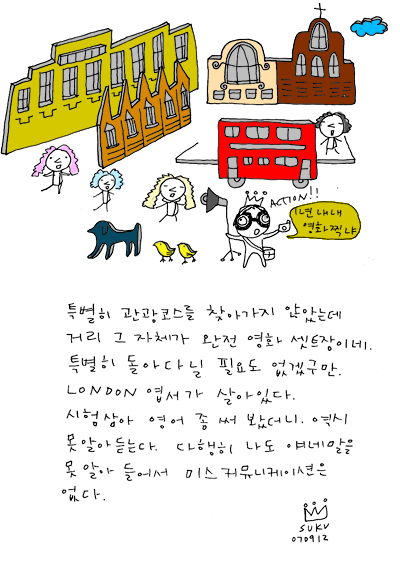 ACTION!!
1년 내내
영화찍냐
특별히 관광코스를 찾아가지 않았는데
거리 그 자체가 완전 영화 셋트장이네.
특별히 돌아다닐 필요도 없겠구만.
LONDON 엽서가 살아있다.
시험삼아 영어 좀 써 봤더니. 역시
못알아듣는다. 다행히 나도 얘네말을
못 알아 들어서 미스커뮤니케이션은
없다.
SUKU
070912